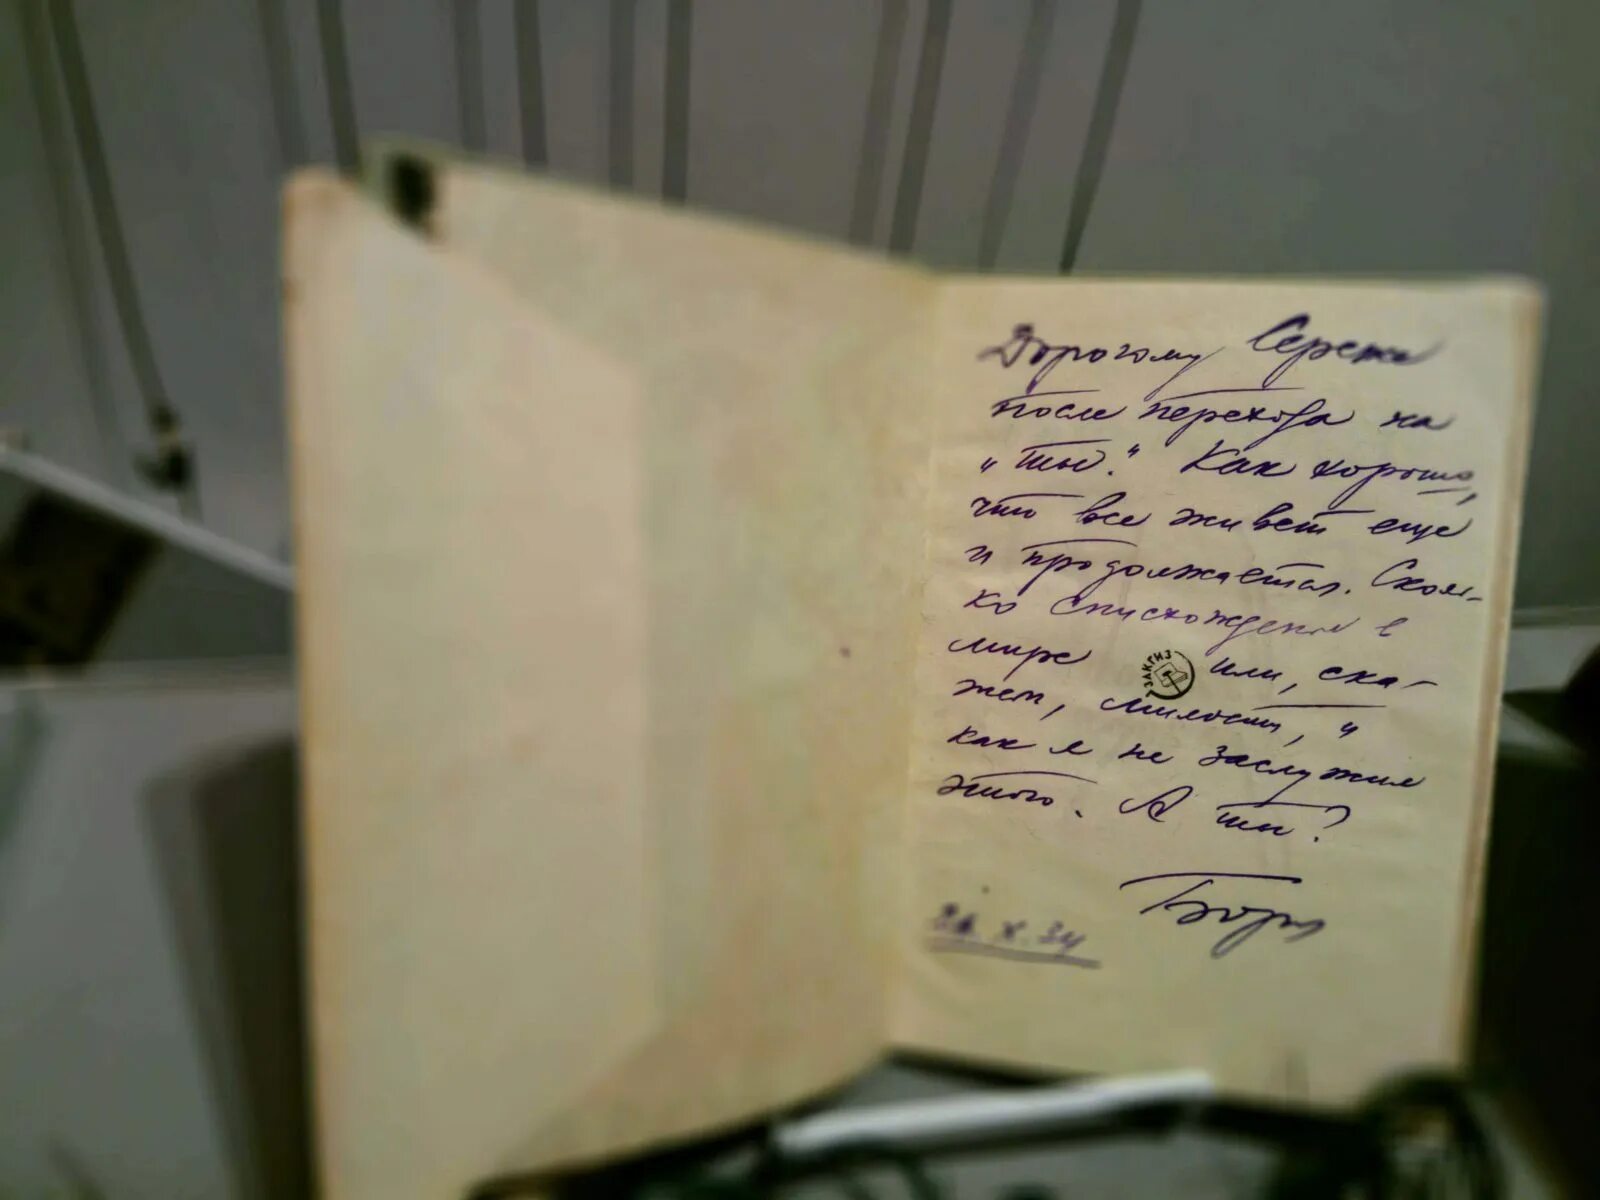 Дорогому Сереже
после перехода на
„ты“. Как хорошо,
что все живет еще
и продолжается. Сколь-
ко снисхожденья в
мире
ЗАКГИЗ
или, ска-
жем, милости, и
как я не заслужил
этого. А ты?
Боря
X.34